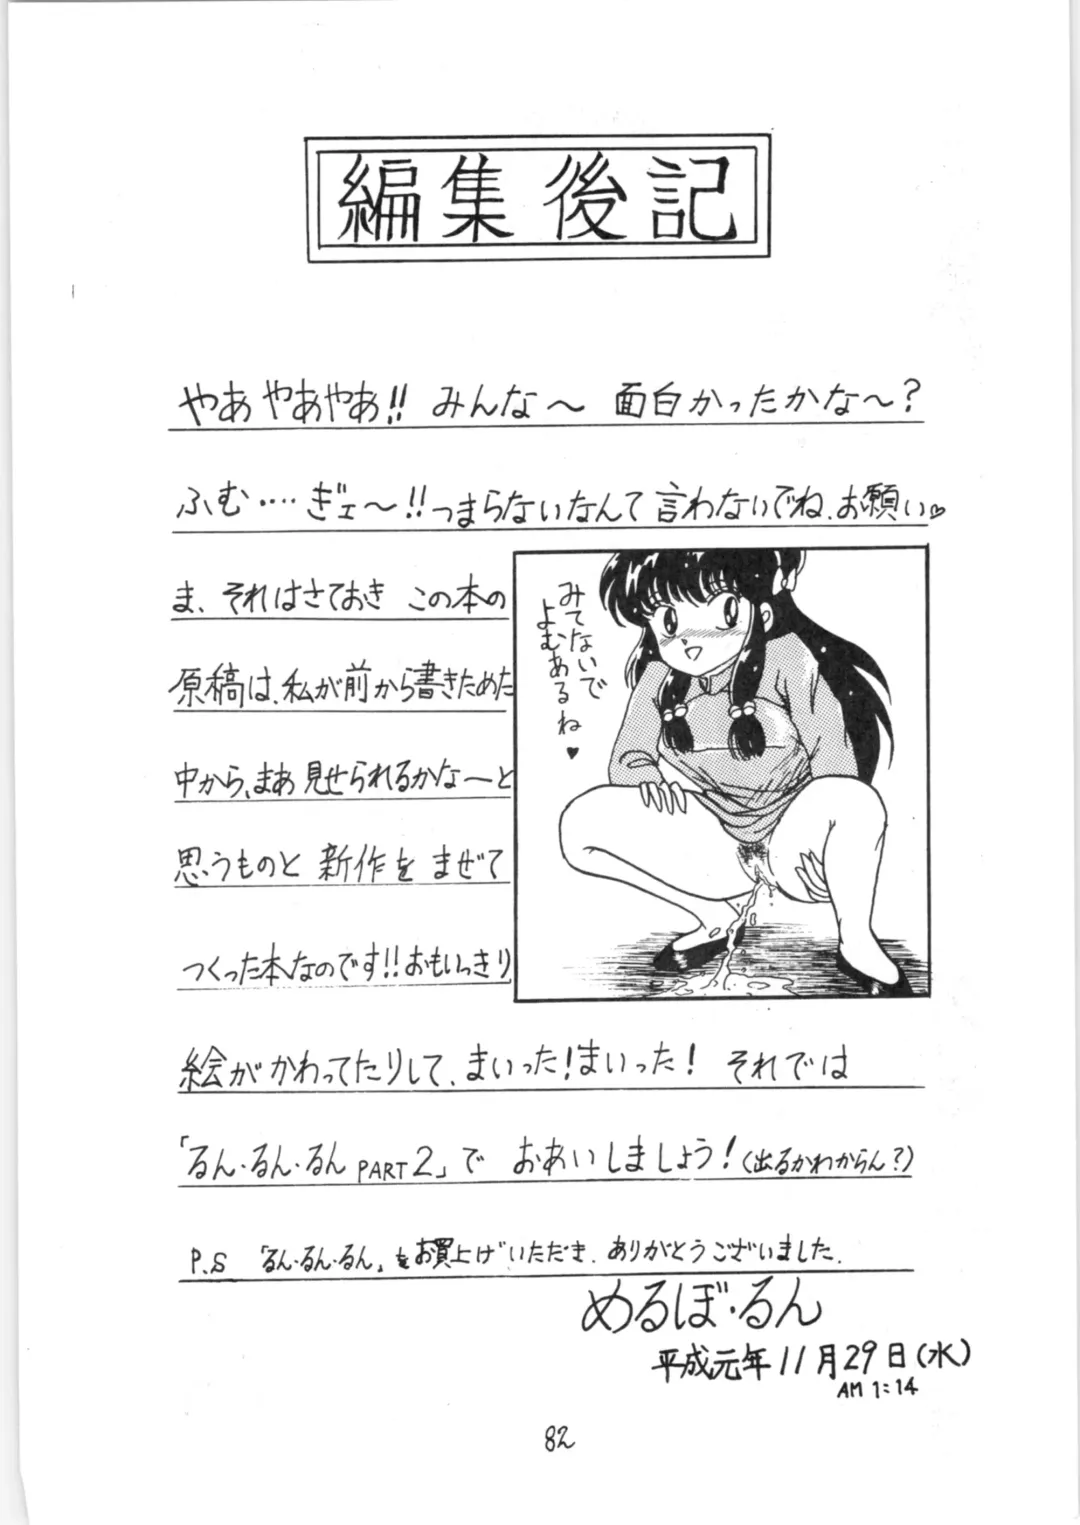 編集後記
やあ やあやあ!! みんな〜 面白かったかな〜?
ふむ‥‥ ぎェ〜!! つまらないなんて 言わないでね、お願い♡
ま、それはさておき この本の
原稿は、私が前から書きためた
中から、まあ 見せられるかな〜と
思うものと 新作を まぜて
つくった本なのです!! おもいっきり
みてないで
よむあるね♥
絵がかわってたりして、まいった! まいった! それでは
「るん・るん・るん PART 2」で おあいしましょう! (出るかわからん?)
P.S 「るん・るん・るん」をお買上げいただき、ありがとうございました。
めるぼ・るん
平成元年11月29日(水)
AM 1:14
82